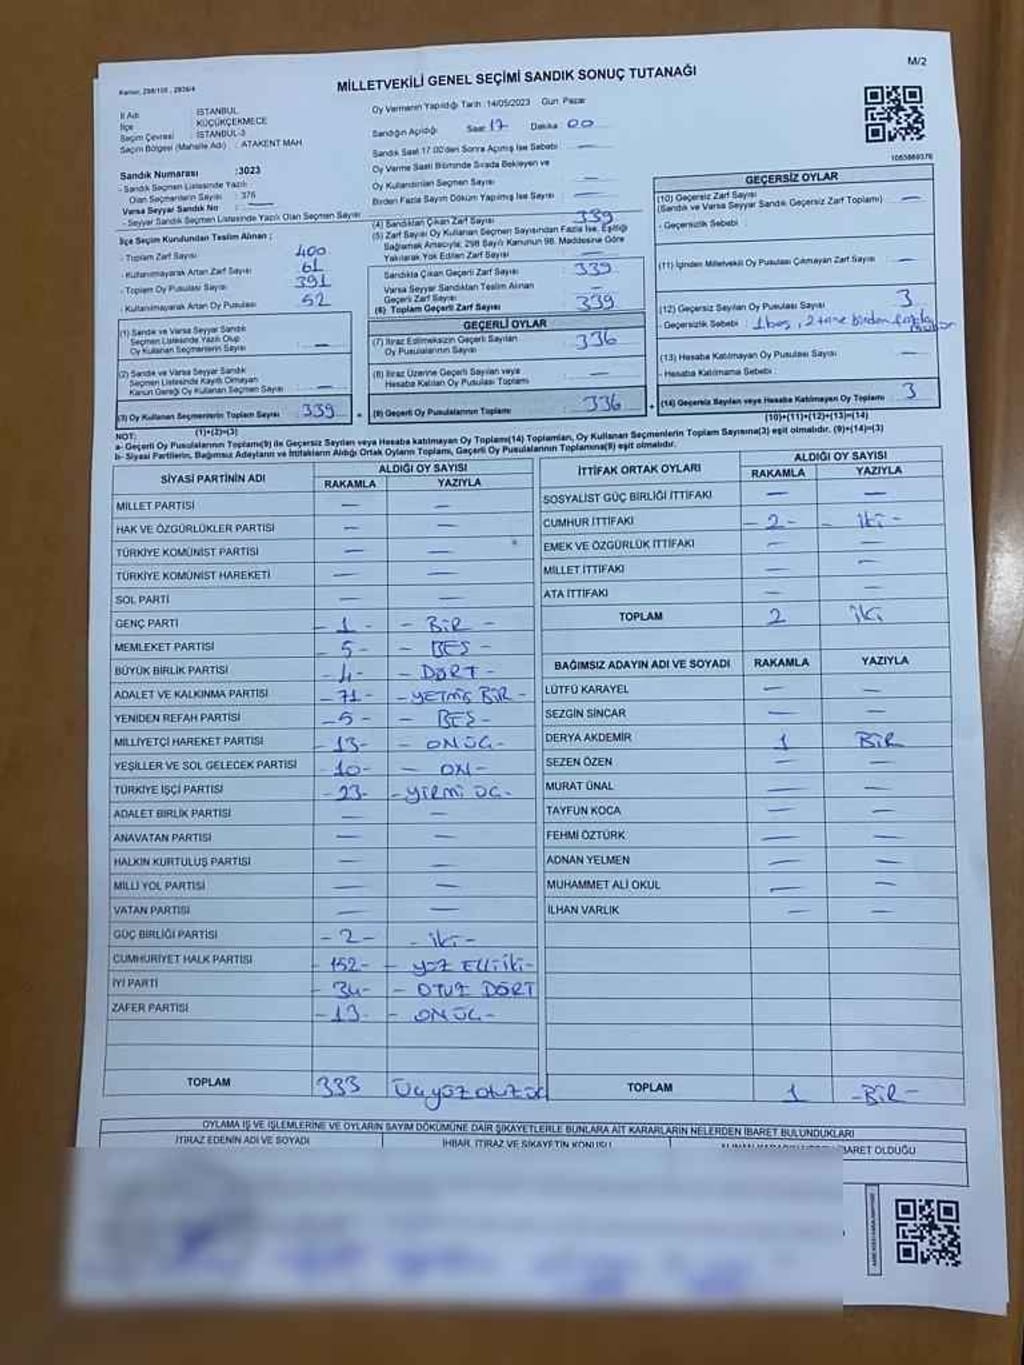 M/2
Kanun, 298/105 , 2839/4
MİLLETVEKİLİ GENEL SEÇİMİ SANDIK SONUÇ TUTANAĞI
İl Adı : İSTANBUL
İlçe : KÜÇÜKÇEKMECE
Seçim Çevresi : İSTANBUL-3
Seçim Bölgesi (Mahalle Adı) : ATAKENT MAH
Sandık Numarası :3023
- Sandık Seçmen Listesinde Yazılı
Olan Seçmenlerin Sayısı : 376
Varsa Seyyar Sandık No : —
- Seyyar Sandık Seçmen Listesinde Yazılı Olan Seçmen Sayısı
Oy Vermenin Yapıldığı Tarih :14/05/2023 Gün: Pazar
Sandığın Açıldığı Saat 17 Dakika 00
Sandık Saat 17.00'den Sonra Açılmış İse Sebebi : —
Oy Verme Saati Bitiminde Sırada Bekleyen ve
Oy Kullandırılan Seçmen Sayısı —
Birden Fazla Sayım Döküm Yapılmış İse Sayısı —
1083869376
İlçe Seçim Kurulundan Teslim Alınan ;
- Toplam Zarf Sayısı 400
- Kullanılmayarak Artan Zarf Sayısı 61
- Toplam Oy Pusulası Sayısı 391
- Kullanılmayarak Artan Oy Pusulası 52
(1) Sandık ve Varsa Seyyar Sandık
Seçmen Listesinde Yazılı Olup
Oy Kullanan Seçmenlerin Sayısı —
(2) Sandık ve Varsa Seyyar Sandık
Seçmen Listesinde Kayıtlı Olmayan
Kanun Gereği Oy Kullanan Seçmen Sayısı —
(3) Oy Kullanan Seçmenlerin Toplam Sayısı 339
(1)+(2)=(3)
(4) Sandıktan Çıkan Zarf Sayısı 339
(5) Zarf Sayısı Oy Kullanan Seçmen Sayısından Fazla İse, Eşitliği
Sağlamak Amacıyla; 298 Sayılı Kanunun 98. Maddesine Göre
Yakılarak Yok Edilen Zarf Sayısı —
Sandıkta Çıkan Geçerli Zarf Sayısı 339
Varsa Seyyar Sandıktan Teslim Alınan
Geçerli Zarf Sayısı —
(6) Toplam Geçerli Zarf Sayısı 339
GEÇERLİ OYLAR
(7) İtiraz Edilmeksizin Geçerli Sayılan
Oy Pusulalarının Sayısı 336
(8) İtiraz Üzerine Geçerli Sayılan veya
Hesaba Katılan Oy Pusulası Toplamı —
(9) Geçerli Oy Pusulalarının Toplamı 336
GEÇERSİZ OYLAR
(10) Geçersiz Zarf Sayısı
(Sandık ve Varsa Seyyar Sandık Geçersiz Zarf Toplamı) —
- Geçersizlik Sebebi :
(11) İçinden Milletvekili Oy Pusulası Çıkmayan Zarf Sayısı —
(12) Geçersiz Sayılan Oy Pusulası Sayısı 3
- Geçersizlik Sebebi : 1 boş, 2 tane birden fazla
(13) Hesaba Katılmayan Oy Pusulası Sayısı —
- Hesaba Katılmama Sebebi :
(14) Geçersiz Sayılan veya Hesaba Katılmayan Oy Toplamı 3
(10)+(11)+(12)+(13)=(14)
NOT:
a- Geçerli Oy Pusulalarının Toplamı(9) ile Geçersiz Sayılan veya Hesaba katılmayan Oy Toplamı(14) Toplamları, Oy Kullanan Seçmenlerin Toplam Sayısına(3) eşit olmalıdır. (9)+(14)=(3)
b- Siyasi Partilerin, Bağımsız Adayların ve İttifakların Aldığı Ortak Oyların Toplamı, Geçerli Oy Pusulalarının Toplamına(9) eşit olmalıdır.
SİYASİ PARTİNİN ADI ALDIĞI OY SAYISI
RAKAMLA YAZIYLA
MİLLET PARTİSİ — —
HAK VE ÖZGÜRLÜKLER PARTİSİ — —
TÜRKİYE KOMÜNİST PARTİSİ — —
TÜRKİYE KOMÜNİST HAREKETİ — —
SOL PARTİ — —
GENÇ PARTİ - 1 - - BİR -
MEMLEKET PARTİSİ - 5 - - BEŞ -
BÜYÜK BİRLİK PARTİSİ - 4 - - DÖRT -
ADALET VE KALKINMA PARTİSİ - 71 - - YETMİŞ BİR -
YENİDEN REFAH PARTİSİ - 5 - - BEŞ -
MİLLİYETÇİ HAREKET PARTİSİ - 13 - - ONÜÇ -
YEŞİLLER VE SOL GELECEK PARTİSİ - 10 - - ON -
TÜRKİYE İŞÇİ PARTİSİ - 23 - - YİRMİ ÜÇ -
ADALET BİRLİK PARTİSİ — —
ANAVATAN PARTİSİ — —
HALKIN KURTULUŞ PARTİSİ — —
MİLLİ YOL PARTİSİ — —
VATAN PARTİSİ — —
GÜÇ BİRLİĞİ PARTİSİ - 2 - - iki -
CUMHURİYET HALK PARTİSİ - 152 - - YÜZ ELLİİKİ -
İYİ PARTİ - 34 - - OTUZ DÖRT
ZAFER PARTİSİ - 13 - - ONÜÇ -
TOPLAM 333 Üçyüz otuz üç
İTTİFAK ORTAK OYLARI ALDIĞI OY SAYISI
RAKAMLA YAZIYLA
SOSYALİST GÜÇ BİRLİĞİ İTTİFAKI — —
CUMHUR İTTİFAKI - 2 - - iki -
EMEK VE ÖZGÜRLÜK İTTİFAKI — —
MİLLET İTTİFAKI — —
ATA İTTİFAKI — —
TOPLAM 2 iki
BAĞIMSIZ ADAYIN ADI VE SOYADI RAKAMLA YAZIYLA
LÜTFÜ KARAYEL — —
SEZGİN SİNCAR — —
DERYA AKDEMİR 1 BİR
SEZEN ÖZEN — —
MURAT ÜNAL — —
TAYFUN KOCA — —
FEHMİ ÖZTÜRK — —
ADNAN YELMEN — —
MUHAMMET ALİ OKUL — —
İLHAN VARLIK — —
TOPLAM 1 - BİR -
OYLAMA İŞ VE İŞLEMLERİNE VE OYLARIN SAYIM DÖKÜMÜNE DAİR ŞİKAYETLERLE BUNLARA AİT KARARLARIN NELERDEN İBARET BULUNDUKLARI
İTİRAZ EDENİN ADI VE SOYADI İHBAR, İTİRAZ VE ŞİKAYETİN KONUSU İBARET OLDUĞU